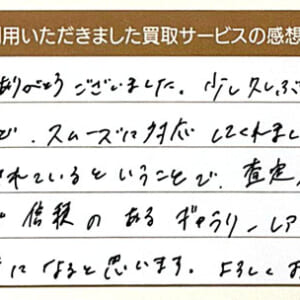 用いただきました買取サービスの感想
ありがとうございました。少し久しぶ
で、スムーズに対応してくれまし
されているということで、査定
信頼のあるギャラリーレア
になると思います。よろしくお